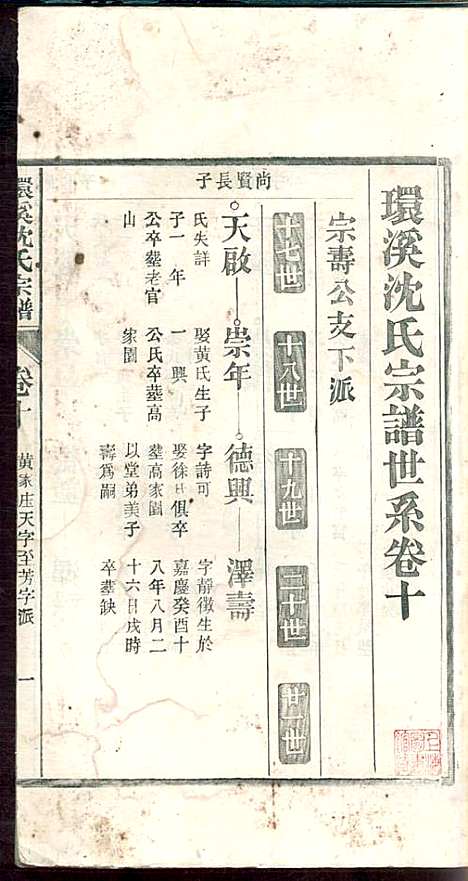 環溪沈氏宗譜世系卷十
宗壽公支下派
十七世
十八世
十九世
二十世
廿一世
尚賢長子
天啟
崇年
德興
澤壽
氏失詳
子一年
公卒塟老官
山
娶黃氏生子
一興
公氏卒塟高
家園
字詩可
娶徐氏俱卒
塟高家園
以堂弟美子
壽為嗣
字靜徵生於
嘉慶癸酉十
八年八月二
十六日戌時
卒塟缺
環溪沈氏宗譜
卷十
黃家庄天字至芳字派
一